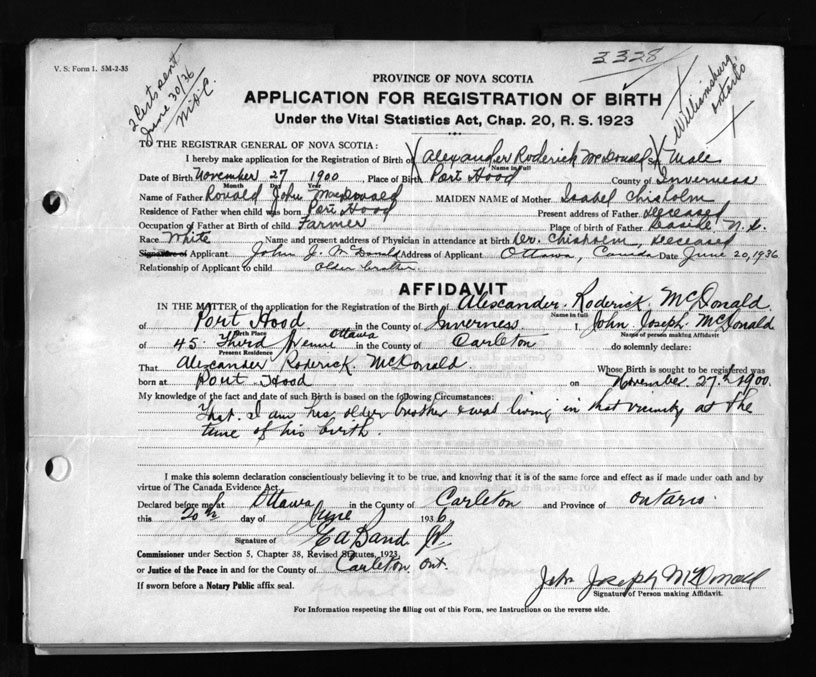 V. S. Form 1. 5M-2-35
2 Certs sent
June 30/36
3328
Williamsburg,
Ontario
PROVINCE OF NOVA SCOTIA
APPLICATION FOR REGISTRATION OF BIRTH
Under the Vital Statistics Act, Chap. 20, R. S. 1923
TO THE REGISTRAR GENERAL OF NOVA SCOTIA:
I hereby make application for the Registration of Birth of Alexander Roderick McDonald Sex Male
Name in Full
Date of Birth November 27 1900 Place of Birth Port Hood County of Inverness
Month Day Year
Name of Father Ronald John MacDonald MAIDEN NAME of Mother Isabel Chisholm
Residence of Father when child was born Port Hood Present address of Father deceased
Occupation of Father at Birth of child Farmer Place of birth of Father N. S.
Race White Name and present address of Physician in attendance at birth Dr. Chisholm, deceased
Signature of Applicant John J. McDonald Address of Applicant Ottawa, Canada Date June 20, 1936
Relationship of Applicant to child older brother.
AFFIDAVIT
IN THE MATTER of the application for the Registration of the Birth of Alexcander Roderick McDonald
Name in full
of Port Hood in the County of Inverness I, John Joseph McDonald
Birth Place Name of person making Affidavit
of 45 Third Avenue Ottawa in the County of Carleton do solemnly declare:
Present Residence
That Alexcander Roderick McDonald. Whose Birth is sought to be registered was
born at Port Hood on November 27th 1900.
My knowledge of the fact and date of such Birth is based on the following Circumstances:
That I am his older brother & was living in that vicinity at the
time of his birth.
I make this solemn declaration conscientiously believing it to be true, and knowing that it is of the same force and effect as if made under oath and by
virtue of The Canada Evidence Act.
Declared before me at Ottawa in the County of Carleton and Province of Ontario.
this 20th day of June 1936.
Signature of E A Band JP
Commissioner under Section 5, Chapter 38, Revised Statutes, 1923,
or Justice of the Peace in and for the County of Carleton, Ont.
If sworn before a Notary Public affix seal.
John Joseph McDonald
Signature of Person making Affidavit.
For Information respecting the filling out of this Form, see Instructions on the reverse side.